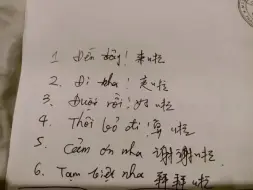 1 Đến đây! 来啦
2. Đi nha! 走啦
3. Được rồi! 好啦
4. Thôi bỏ đi! 算啦
5. Cảm ơn nha 谢谢啦
6. Tạm biệt nha 拜拜啦